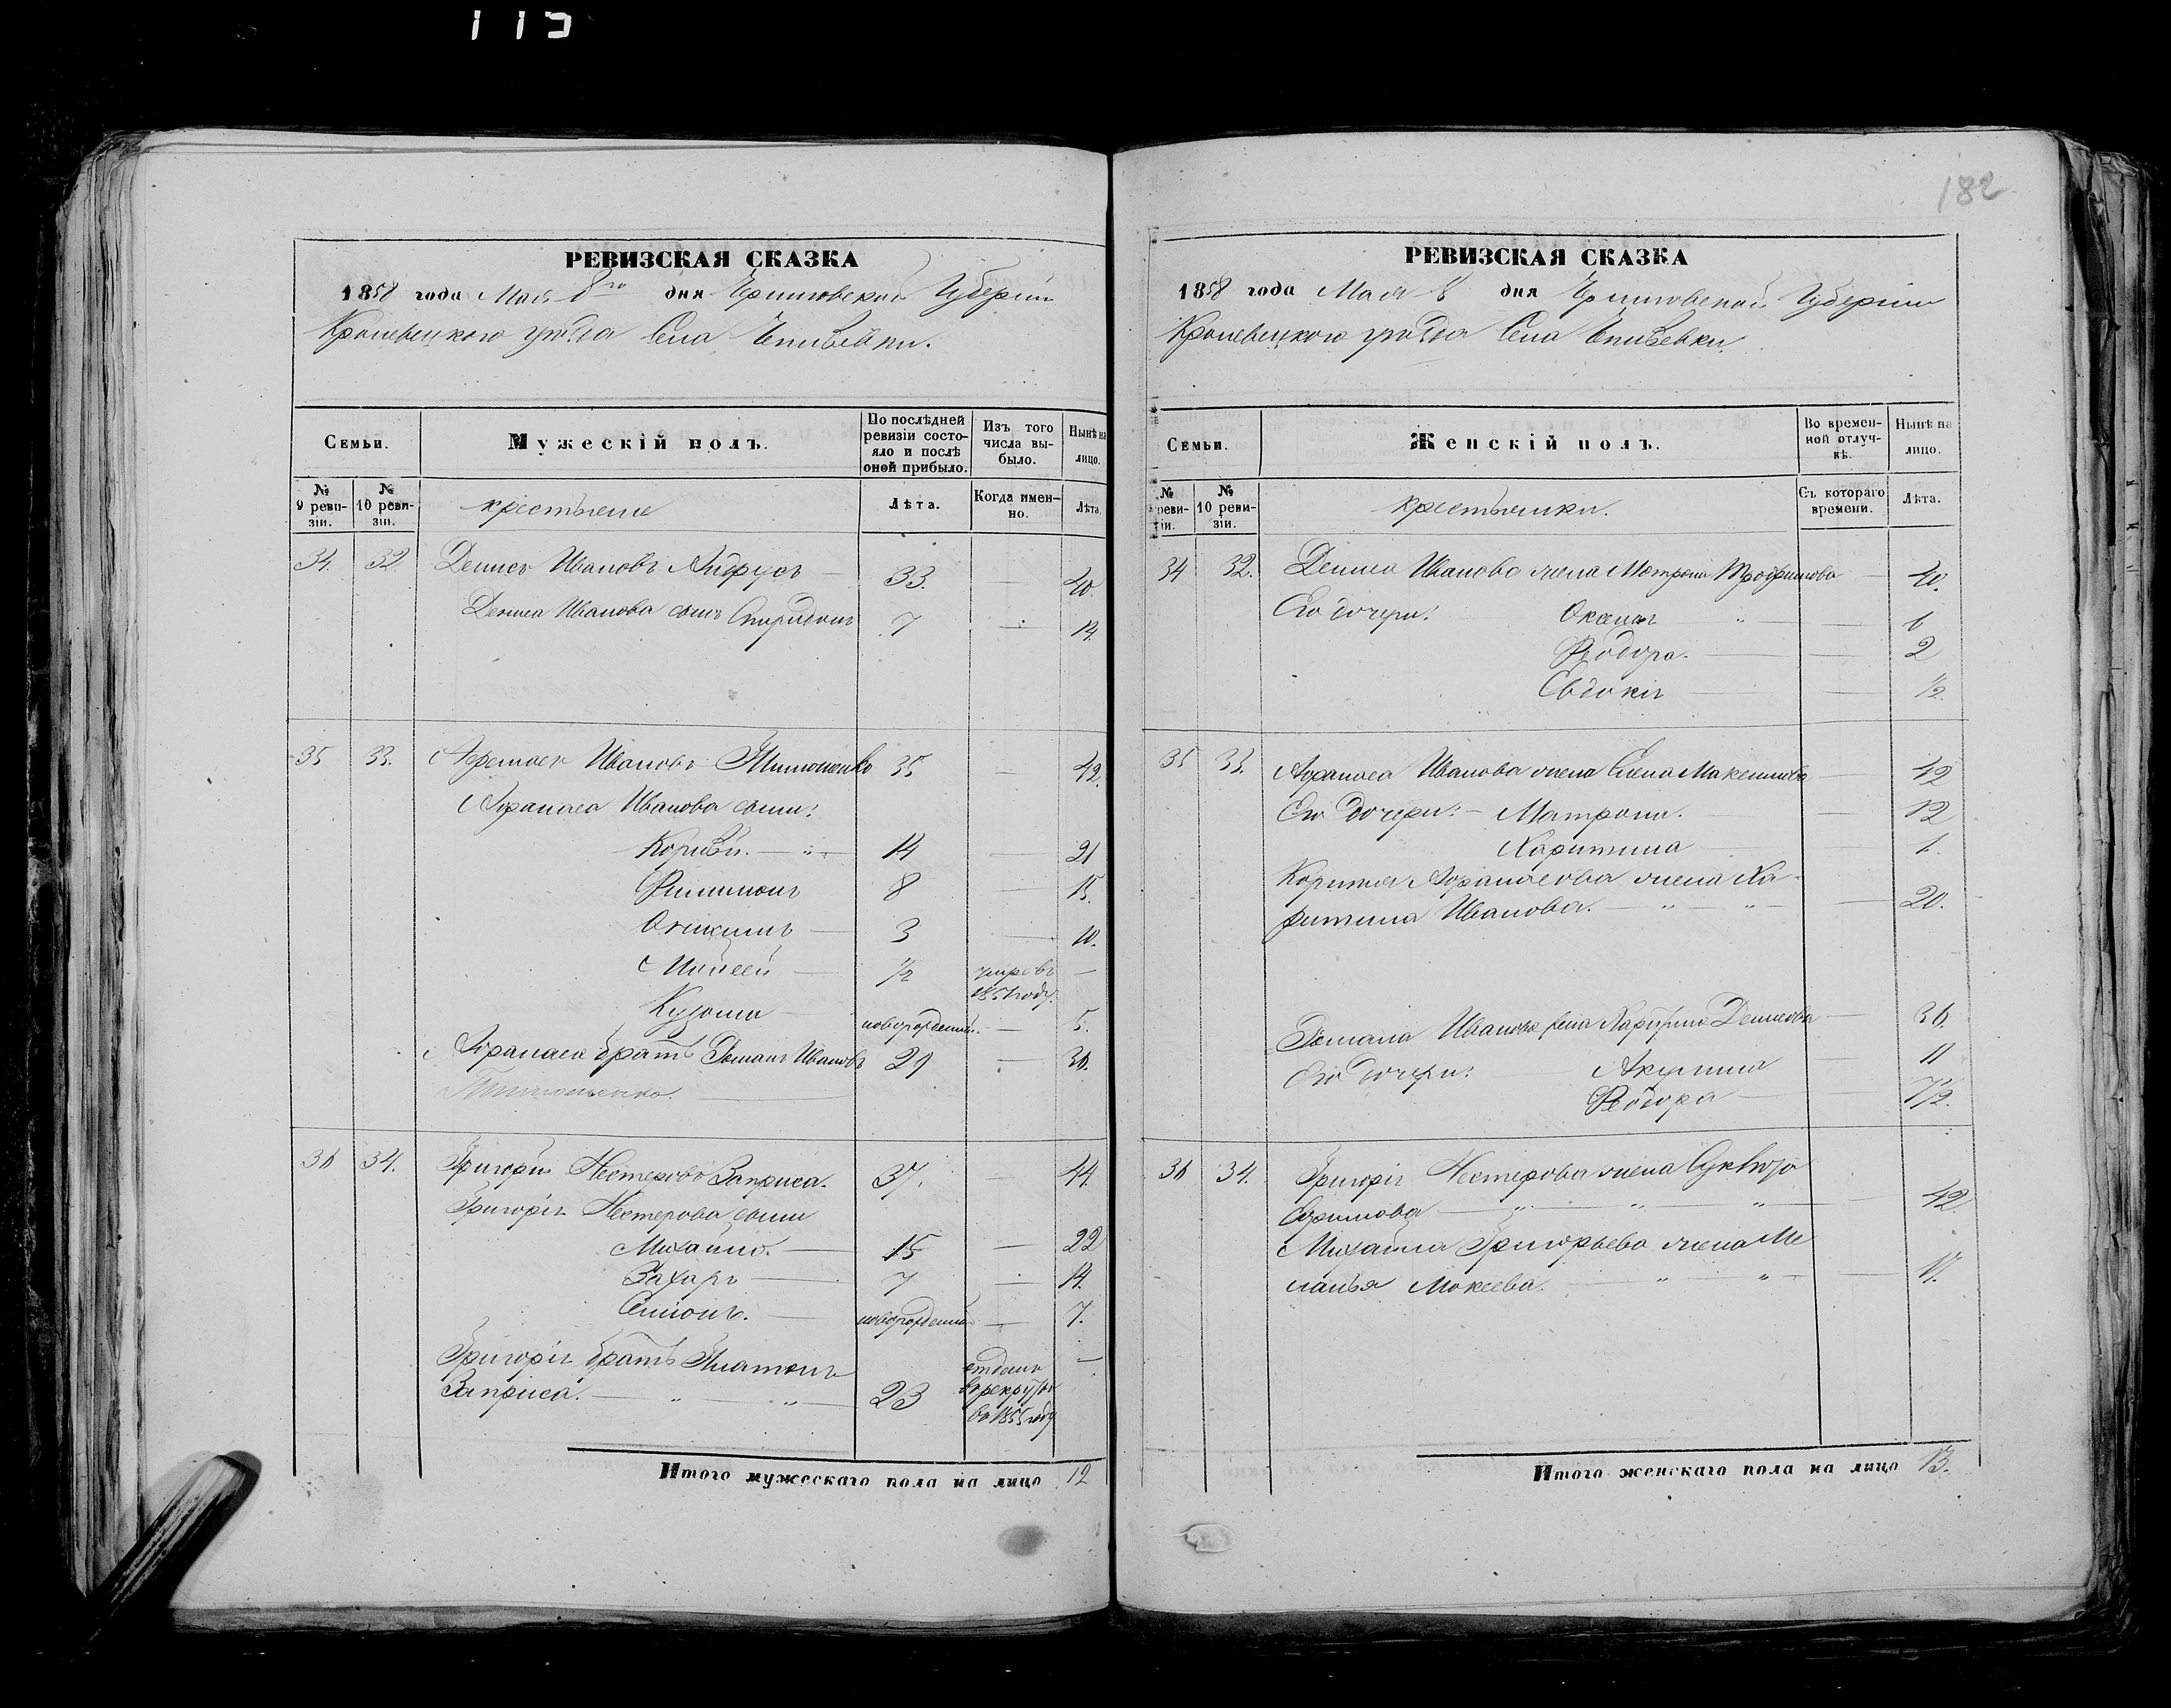 115
182
РЕВИЗСКАЯ СКАЗКА
1858 года Мая 8го дня Черниговской Губернiи
Кролевецкого уѣзда Села
Семьи.
Мужескiй полъ.
По послѣдней ревизiи состо-
яло и послѣ
оной прибыло.
Изъ того
числа вы-
было.
Нынѣ на
лицо.
№
9 реви-
зiи.
№
10 реви-
зiи.
крестьяне
Лѣта.
Когда имен-
но.
Лѣта.
34. 32 Денис Ивановъ 33. — 40.
Дениса Иванова сынъ Спиридонъ 7 — 14.
35 33. Ивановъ 35 — 42.
Афанаса Иванова сыни:
14 — 21
Филимонъ 8 — 15.
3 — 10.
Мойсей — 1/2 умре въ —
1851 году.
Кузьма — новорожденный — 5.
Афанаса братъ Романъ Ивановъ 29 — 36.
36 34. Григорiй Нестеровъ 37. — 44.
Григорiя Нестерова сыни
Михайло. — 15 — 22
Захаръ — 7 — 14.
Семіонъ. — новорожденный — 7.
Григорiя братъ Платонъ отданъ —
23 в рекруты
во 1855 году
Итого мужескаго пола на лицо 12
РЕВИЗСКАЯ СКАЗКА
1858 года Мая 8 дня Черниговской Губернiи
Кролевецкого уѣзда Села
Семьи.
Женскiй полъ.
Во времен-
ной отлуч-
кѣ.
Нынѣ на
лицо.
№
9 реви-
зiи.
№
10 реви-
зiи.
крестьянки.
Съ котораго
времени.
Лѣта.
34 32. Дениса Иванова жена Мотрона Трофимова — 40.
Его дочери: Оксана " — 6
Феодора. — 2
Евдокiя — 1/2.
35 33. Афанаса Иванова жена Елена Максимова — 42
Его дочери: — Матрона. — 12
Харитина 1.
Афанасова жена Ха-
ритина Иванова. — " — " — 20.
Романа Иванова жена Денисова — 36.
Его дочери: Акулина — 11
Феодора —
36 34. Григорiя Нестерова жена
— " — " — " — 42
Михайла Григорьева жена Ме
ланья Мокеева. — " — " —
Итого женскаго пола на лицо 13.